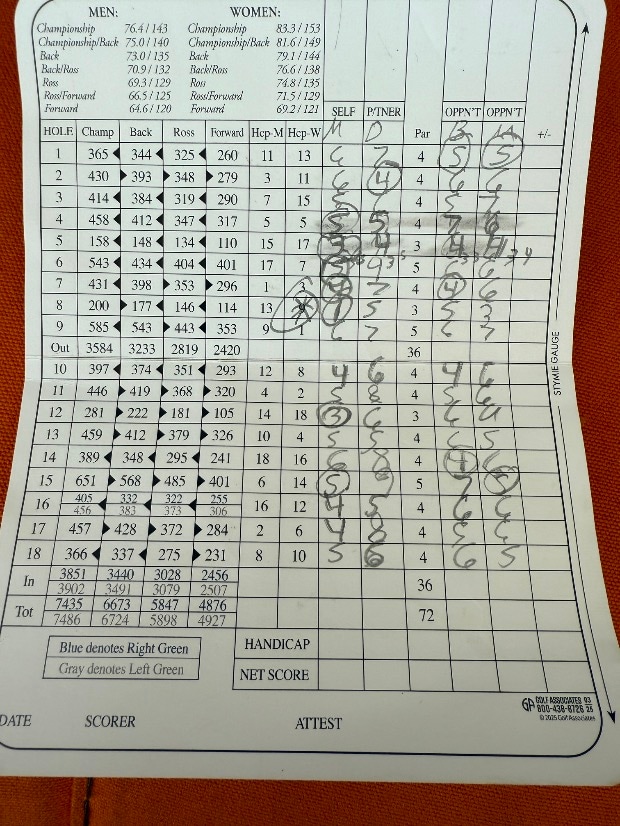 MEN: WOMEN:
Championship 76.4 / 143 Championship 83.3 / 153
Championship/Back 75.0 / 140 Championship/Back 81.6 / 149
Back 73.0 / 135 Back 79.1 / 144
Back/Ross 70.9 / 132 Back/Ross 76.6 / 138
Ross 69.3 / 129 Ross 74.8 / 135
Ross/Forward 66.5 / 125 Ross/Forward 71.5 / 129
Forward 64.6 / 120 Forward 69.2 / 121
SELF P/TNER OPPN'T OPPN'T
HOLE Champ Back Ross Forward Hcp-M Hcp-W M D Par B +/-
1 365 344 325 260 11 13 6 7 4 5 5
2 430 393 348 279 3 11 6 4 4 6 6
3 414 384 319 290 7 15 6 4 5 7
4 458 412 347 317 5 5 5 5 4 7 6
5 158 148 134 110 15 17 3 4 3 4 4
6 543 434 404 401 17 7 5 6 6
7 431 398 353 296 1 3 4 7 4 4 6
8 200 177 146 114 13 5 3 5 3
9 585 543 443 353 9 1 6 7 5 6 7
Out 3584 3233 2819 2420 36
10 397 374 351 293 12 8 4 6 4 4 6
11 446 419 368 320 4 2 5 8 4 5
12 281 222 181 105 14 18 3 6 3 6 4
13 459 412 379 326 10 4 5 5 4 6 5
14 389 348 295 241 18 16 6 8 4 4
15 651 568 485 401 6 14 5 5 7 5
16 405 332 322 255 16 12 4 5 4 6 6
456 383 373 306
17 457 428 372 284 2 6 4 8 4 5 6
18 366 337 275 231 8 10 5 6 4 6 5
In 3851 3440 3028 2456 36
3902 3491 3079 2507
Tot 7435 6673 5847 4876 72
7486 6724 5898 4927
Blue denotes Right Green HANDICAP
Gray denotes Left Green NET SCORE
DATE SCORER ATTEST
STYMIE GAUGE
GA GOLF ASSOCIATES
800-438-8726
© 2025 Golf Associates